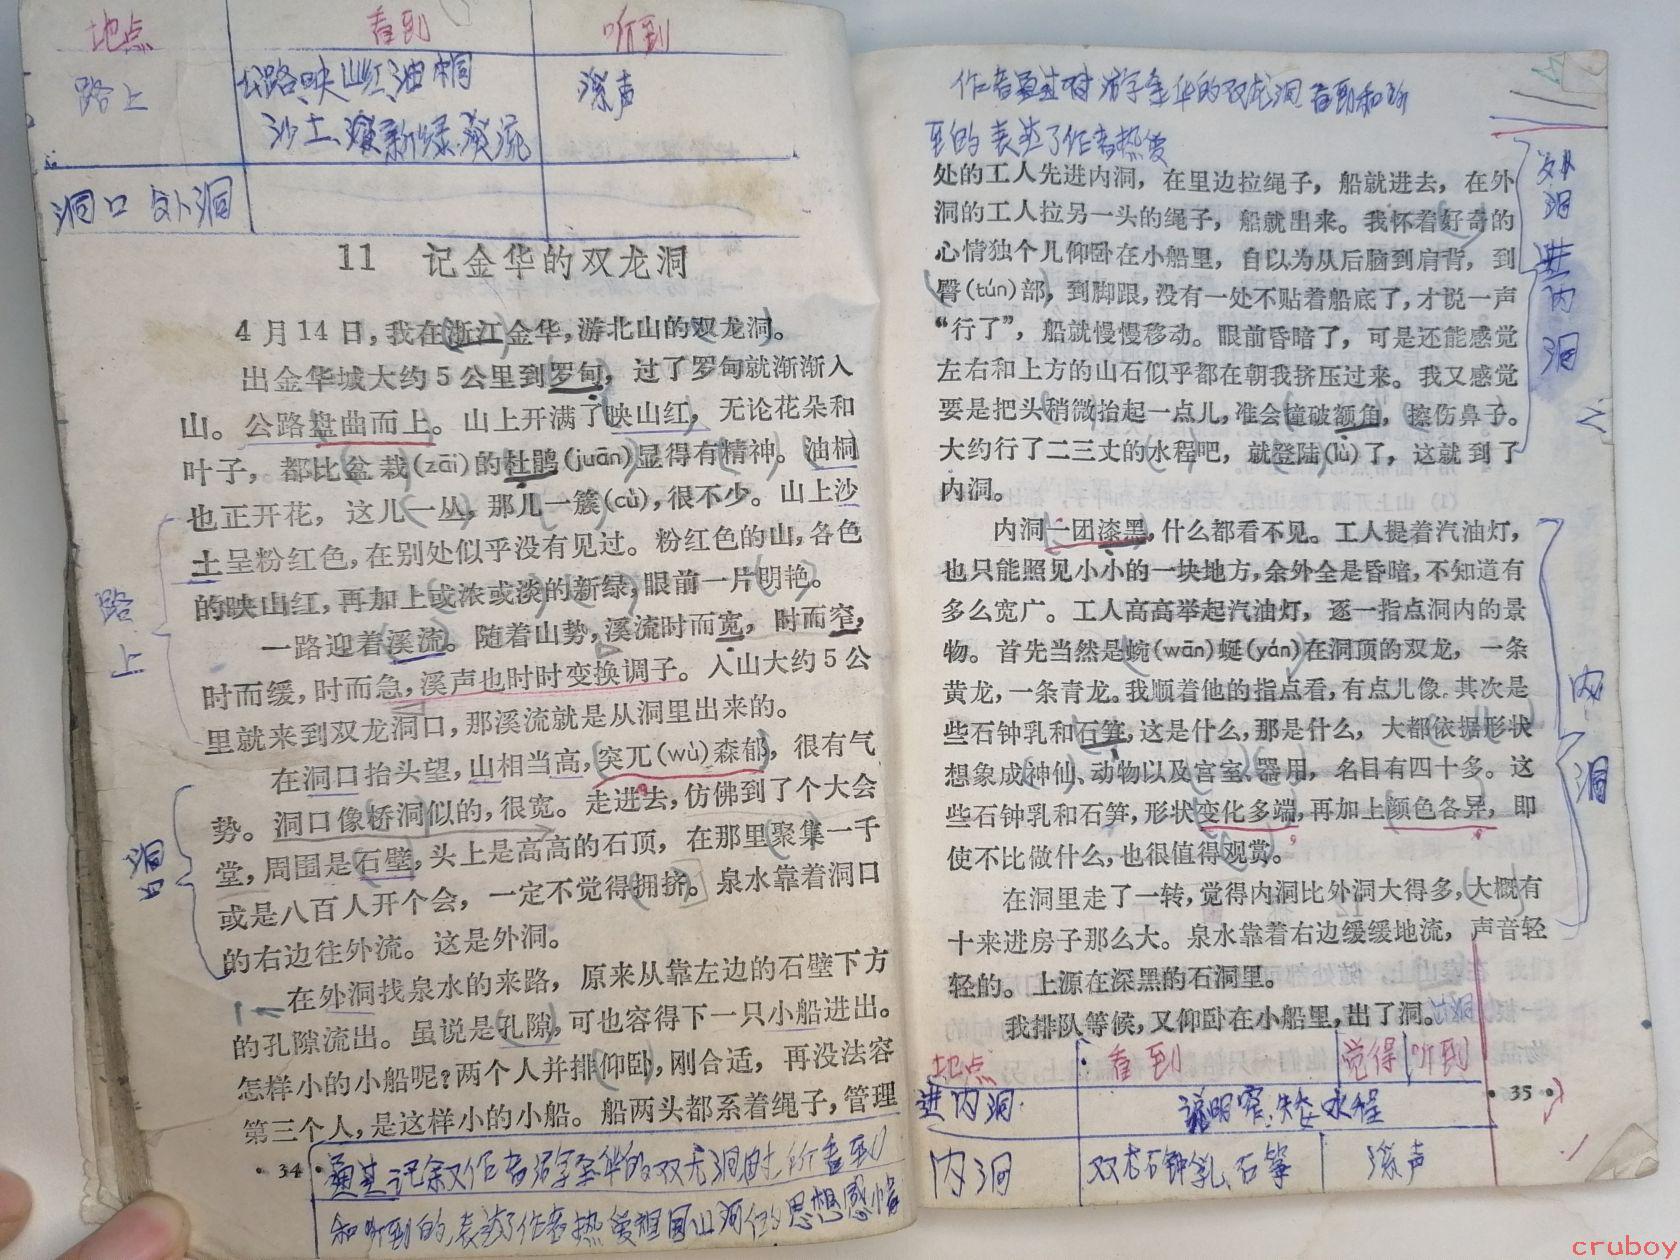 地点 看到 听到
路上 公路、映山红、油桐 溪声
沙土、新绿、溪流
洞口 外洞
11 记金华的双龙洞
4月14日，我在浙江金华，游北山的双龙洞。
出金华城大约5公里到罗甸，过了罗甸就渐渐入
山。公路盘曲而上。山上开满了映山红，无论花朵和
叶子，都比盆栽(zāi)的杜鹃(juān)显得有精神。油桐
也正开花，这儿一丛，那儿一簇(cù)，很不少。山上沙
土呈粉红色，在别处似乎没有见过。粉红色的山，各色
的映山红，再加上或浓或淡的新绿，眼前一片明艳。
一路迎着溪流。随着山势，溪流时而宽，时而窄，
时而缓，时而急，溪声也时时变换调子。入山大约5公
里就来到双龙洞口，那溪流就是从洞里出来的。
在洞口抬头望，山相当高，突兀(wù)森郁，很有气
势。洞口像桥洞似的，很宽。走进去，仿佛到了个大会
堂，周围是石壁，头上是高高的石顶，在那里聚集一千
或是八百人开个会，一定不觉得拥挤。泉水靠着洞口
的右边往外流。这是外洞。
在外洞找泉水的来路，原来从靠左边的石壁下方
的孔隙流出。虽说是孔隙，可也容得下一只小船进出。
怎样小的小船呢？两个人并排仰卧，刚合适，再没法容
第三个人，是这样小的小船。船两头都系着绳子，管理
路上
洞口
·34·
通过记叙作者游览金华的双龙洞时所看到
和听到的，表达了作者热爱祖国山河的思想感情
作者通过对游字金华的双龙洞看到和听
到的表达了作者热爱
处的工人先进内洞，在里边拉绳子，船就进去，在外
洞的工人拉另一头的绳子，船就出来。我怀着好奇的
心情独个儿仰卧在小船里，自以为从后脑到肩背，到
臀(tún)部，到脚跟，没有一处不贴着船底了，才说一声
“行了”，船就慢慢移动。眼前昏暗了，可是还能感觉
左右和上方的山石似乎都在朝我挤压过来。我又感觉
要是把头稍微抬起一点儿，准会撞破额角，擦伤鼻子。
大约行了二三丈的水程吧，就登陆(lù)了，这就到了
内洞。
内洞一团漆黑，什么都看不见。工人提着汽油灯，
也只能照见小小的一块地方，余外全是昏暗，不知道有
多么宽广。工人高高举起汽油灯，逐一指点洞内的景
物。首先当然是蜿(wān)蜒(yán)在洞顶的双龙，一条
黄龙，一条青龙。我顺着他的指点看，有点儿像。其次是
些石钟乳和石笋，这是什么，那是什么，大都依据形状
想象成神仙、动物以及宫室、器用，名目有四十多。这
些石钟乳和石笋，形状变化多端，再加上颜色各异，即
使不比做什么，也很值得观赏。
在洞里走了一转，觉得内洞比外洞大得多，大概有
十来进房子那么大。泉水靠着右边缓缓地流，声音轻
轻的。上源在深黑的石洞里。
我排队等候，又仰卧在小船里，出了洞。
外洞进内洞
内洞
地点 看到 觉得 听到
·35·
进内洞 水程
内洞 双龙石钟乳、石笋 溪声
cruboy